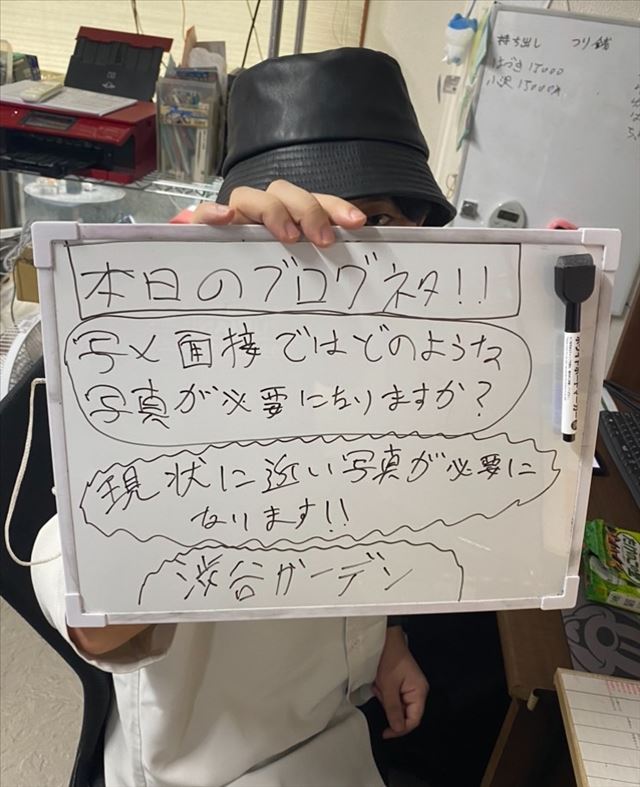 持ち出し つり銭
はづき 15000
小沢 15000
本日のブログネタ!!
写メ面接ではどのような
写真が必要になりますか?
現状に近い写真が必要に
なります!!
渋谷ガーデン